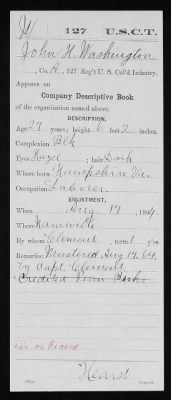 W 127 U.S.C.T.
John H Washington
, Co. A, 127 Reg't U. S. Col'd Infantry.
Appears on
Company Descriptive Book
of the organization named above.
DESCRIPTION.
Age 27 years; height 6 feet 2 inches.
Complexion Blk
Eyes Hazel ; hair Dark
Where born Hampshire Va.
Occupation Laborer
ENLISTMENT.
When Aug 17, 1864.
Where
By whom Clement, term 1 y'rs
Remarks: Mustered Aug 17. 64.
by Capt Clement
Credited Penn
on Record.